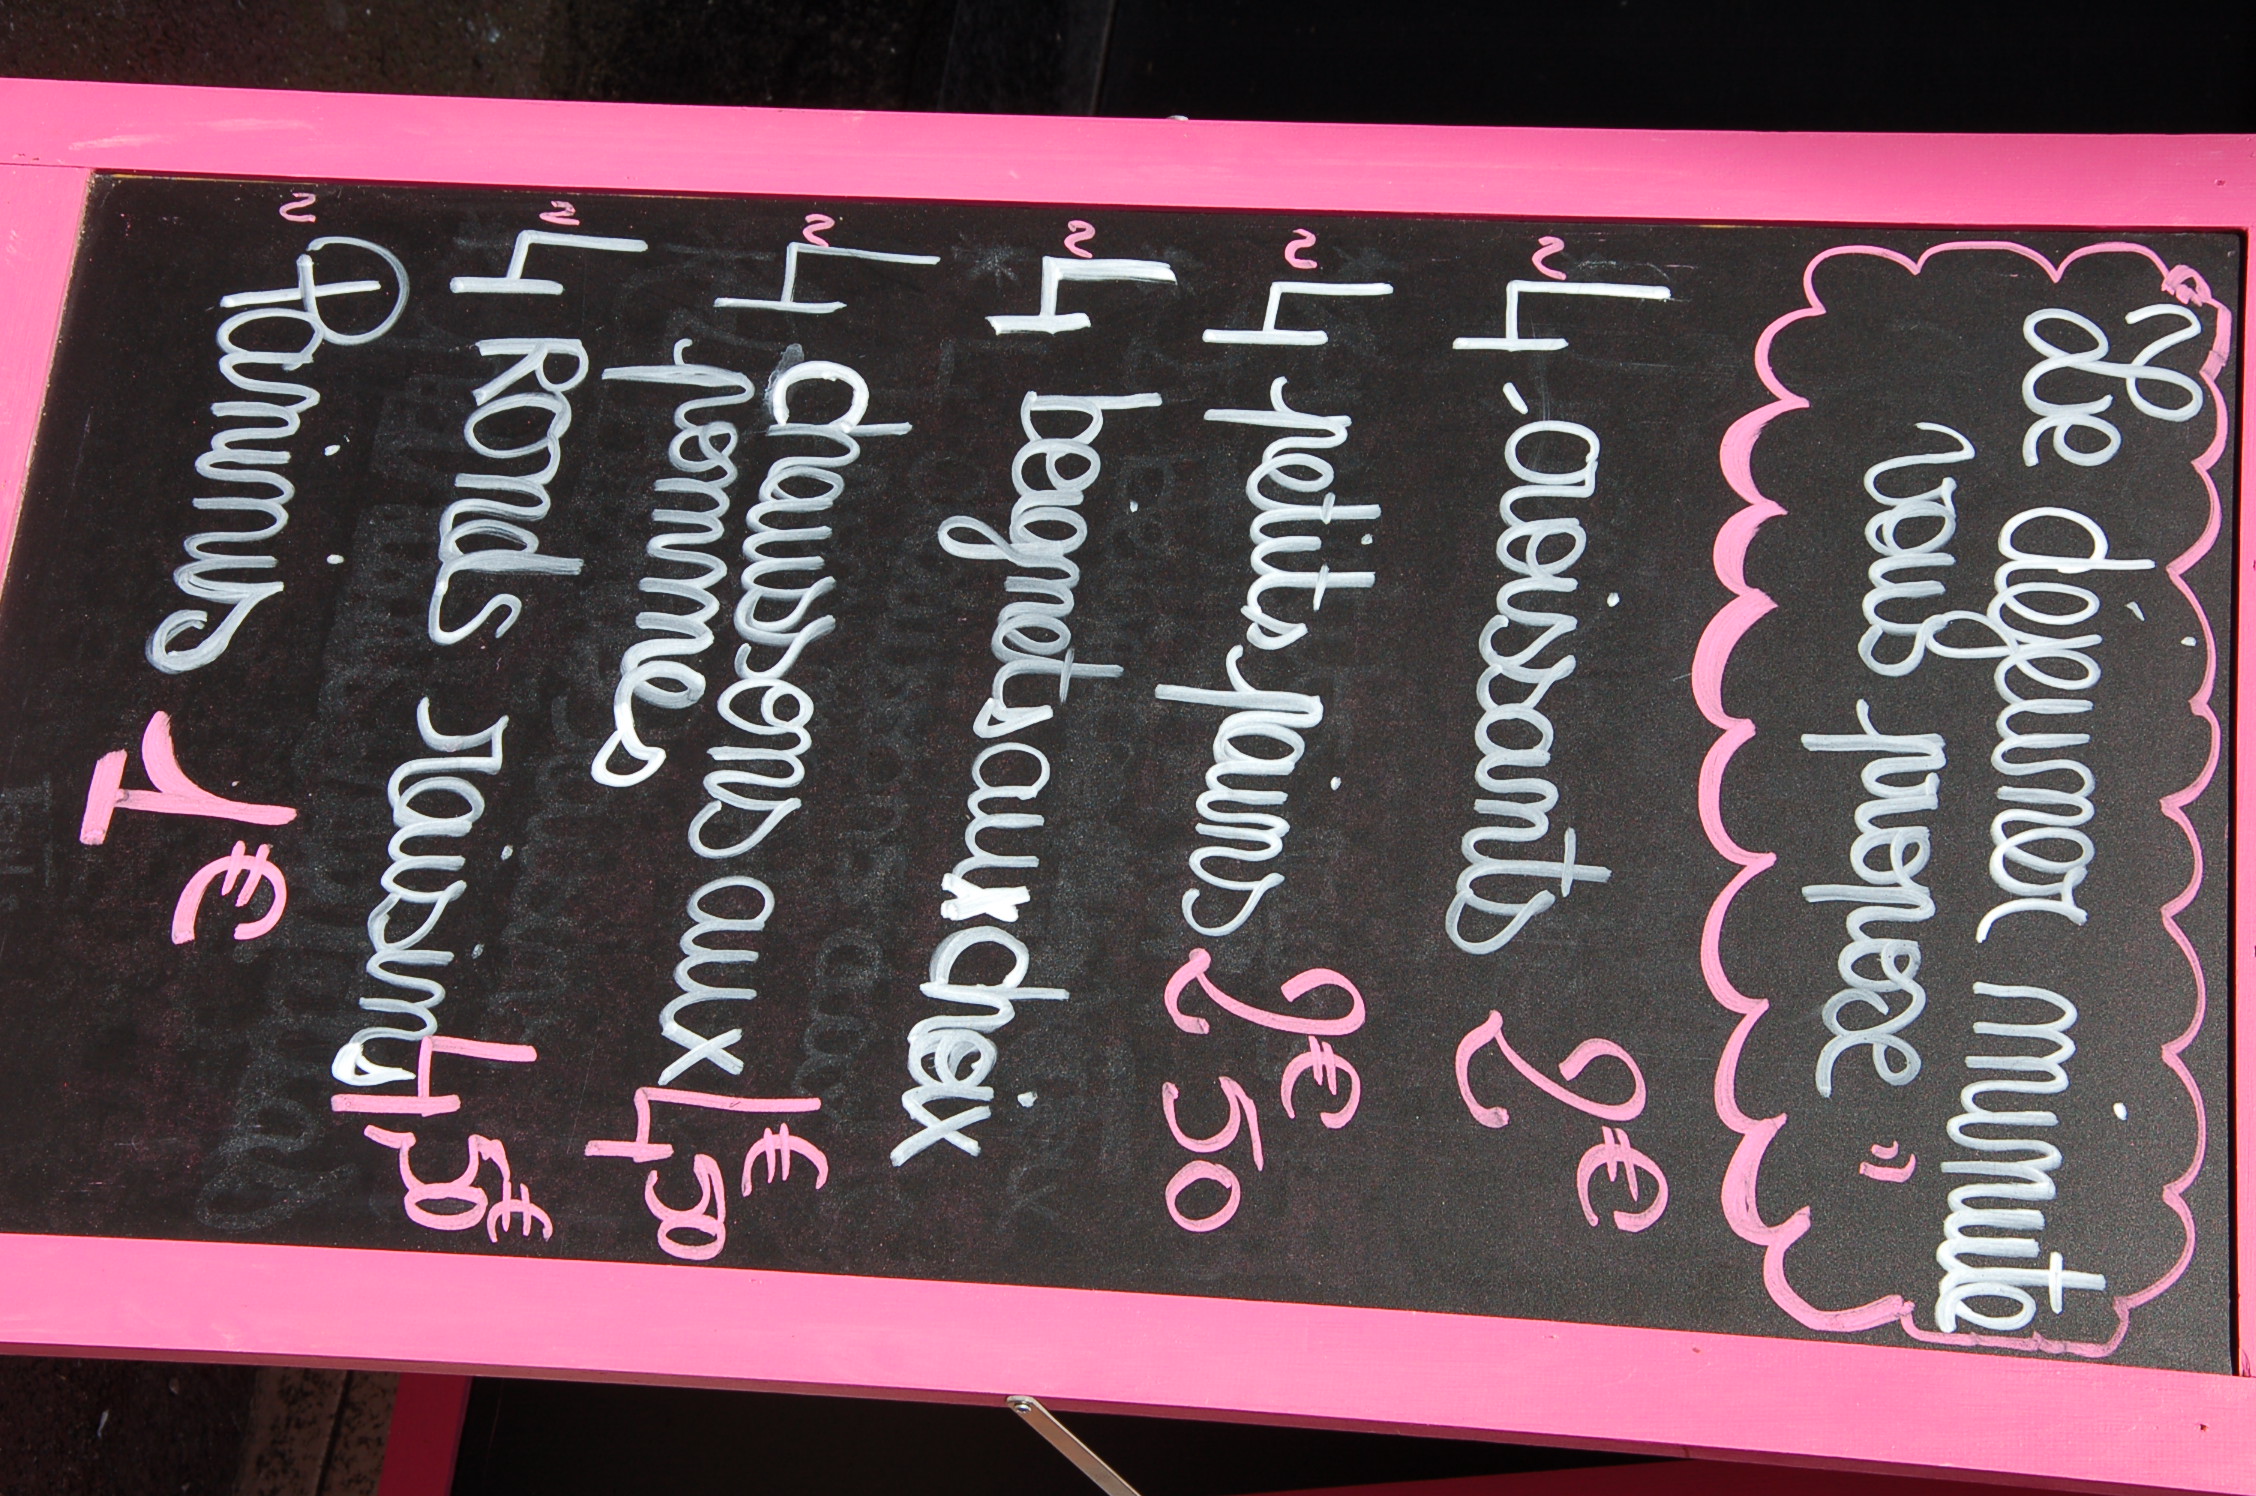 Le déjeuner minute
vous propose
~ 4 croissants 2€
~ 4 petits pains 2€50
~ 4 beignets aux choix
~ 4 chaussons aux 4€50
pommes
~ 4 Ronds raisins 4,50€
~ Paninis 1€